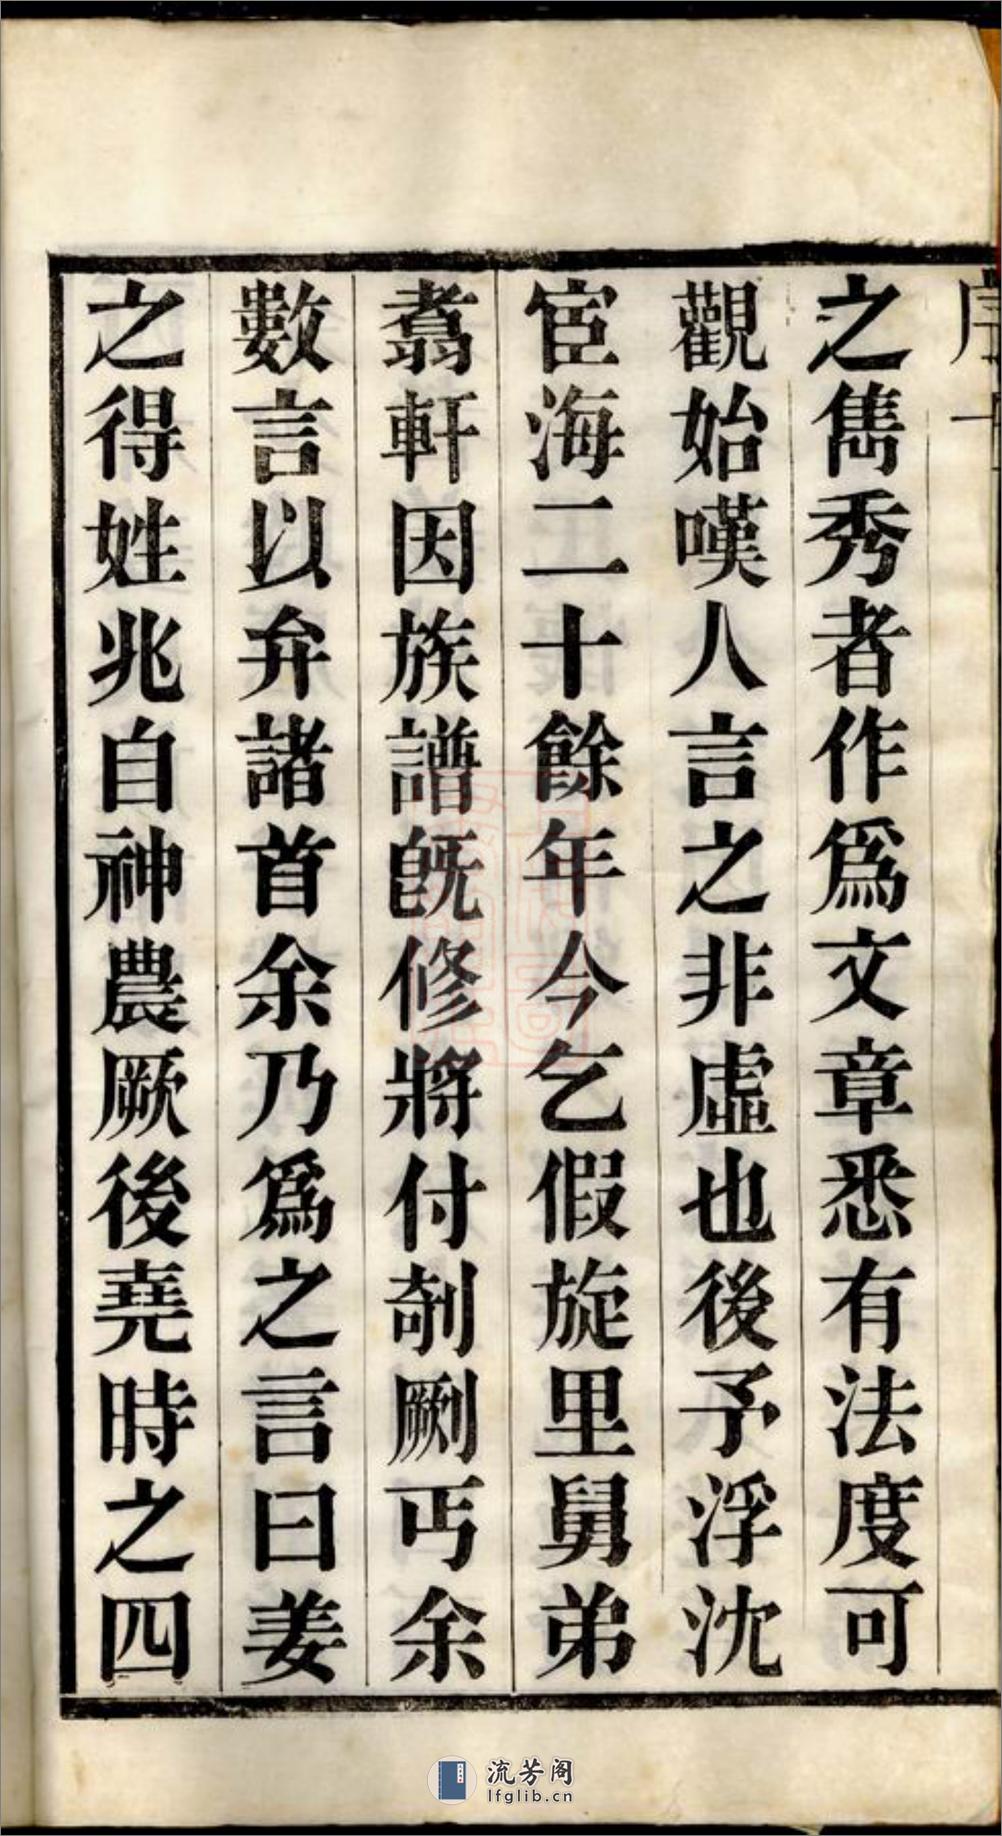 序
之雋秀者作爲文章悉有法度可
觀始嘆人言之非虛也後予浮沈
宦海二十餘年今乞假旋里舅弟
翥軒因族譜旣修將付剞劂丐余
數言以弁諸首余乃爲之言曰姜
之得姓兆自神農厥後堯時之四
流芳阁
lfglib.cn